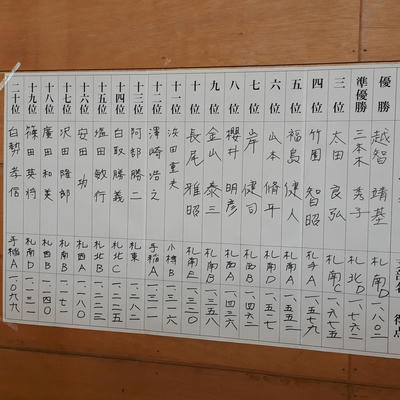 優勝 越智 靖基 札南D 一、八〇二
準優勝 三本木 秀子 札北D 一、七六二
三位 太田 良弘 札南C 一、六七五
四位 竹園 智昭 札手A 一、五七九
五位 福島 健人 札南A 一、五五二
六位 山本 脩平 札南D 一、五二七
七位 岸 健司 札西B 一、四六二
八位 櫻井 明彦 札西A 一、四三六
九位 金山 泰三 札南B 一、三五八
十位 長尾 雅昭 札南E 一、三二〇
十一位 浜田 重夫 小樽B 一、三一六
十二位 澤崎 浩之 手稲A 一、二八一
十三位 阿部 勝二 札東
十四位 白取 勝義 札北C 一、二二五
十五位 塩田 敏行 札北B 一、二二三
十六位 安田 功 札西A 一、一八〇
十七位 沢田 隆郎 札南B 一、一七一
十八位 廣田 和美 札西B 一、一四〇
十九位 篠田 英将 札南D 一、一三一
二十位 白勢 孝信 手稲A 一、〇九九